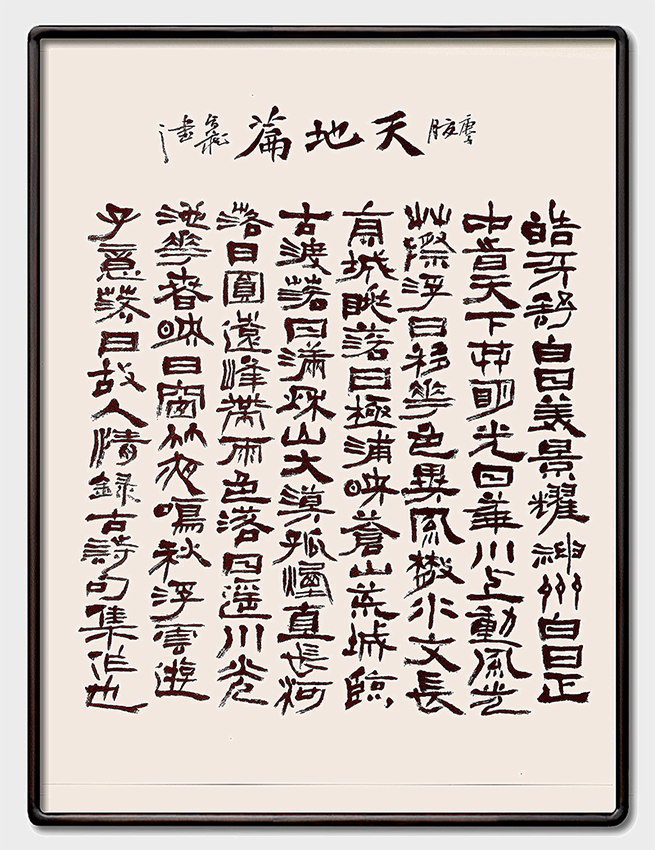 天地篇
皓牙舒白日美景耀神州白日正
中皆天下共明光日華川上動風光
艸際浮日移花色異風散水文長
高城眺落日極浦映蒼山荒城臨
古渡落日滿秋山大漠孤煙直長河
落日圓遠峰帶雨色落日遥川光
池花春映日窗竹夜鳴秋浮雲遊
子意落日故人情錄古詩句集作也